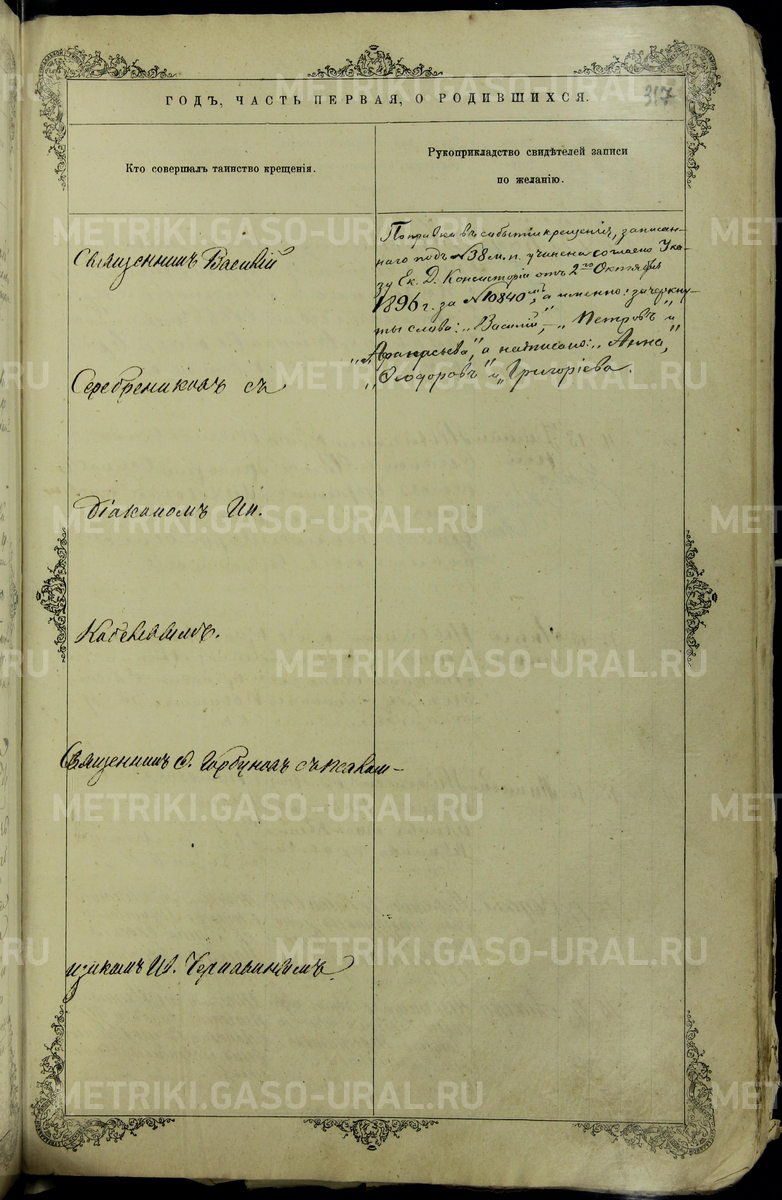 ГОДЪ, ЧАСТЬ ПЕРВАЯ, О РОДИВШИХСЯ.
317
Кто совершалъ таинство крещенія.
Рукоприкладство свидѣтелей записи
по желанію.
Священникъ Василій
Серебрениковъ съ
Діакономъ Ин.
Священникъ Ѳ. Горбуновъ съ псалом-
щикомъ И. Чернавинымъ
Поправка въ событіи крещенія, записан-
наго подъ №38 м. п. учинена согласно Ука-
зу Ек. Д. Консисторіи отъ 2го Октября
1896 г. за №10840мъ, а именно: зачеркну-
ты слова: „Василій", „Петровъ" и
„Афанасьева", а написано: „Анна",
„Ѳеодоровъ" и „Григоріева.
METRIKI.GASO-URAL.RU